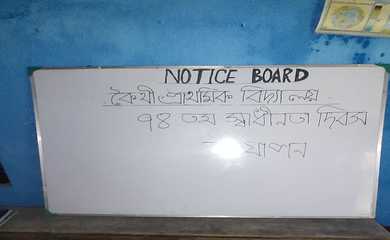 NOTICE BOARD
কৈথী প্রাথমিক বিদ্যালয়
৭৪ তম স্বাধীনতা দিবস
যাপন